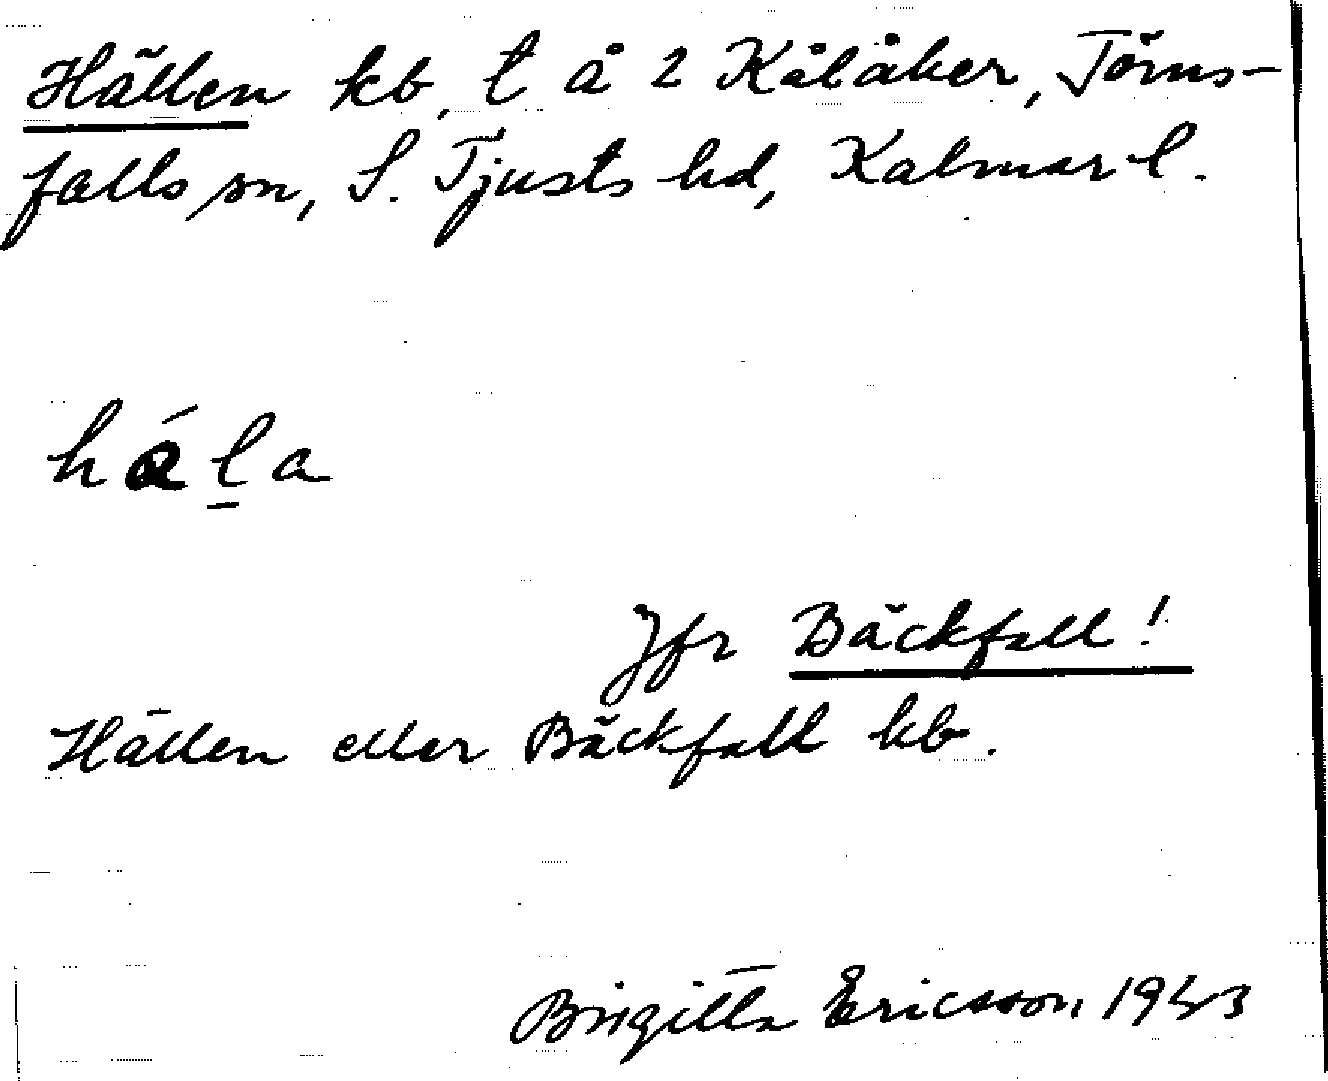 Hällen kb, t å 2 Kålåker, Törns-
falls sn, S. Tjusts hd, Kalmar l.
hál̲a
Jfr Bäckfall!
Hällen eller Bäckfall kb.
Birgitta Ericsson 1943